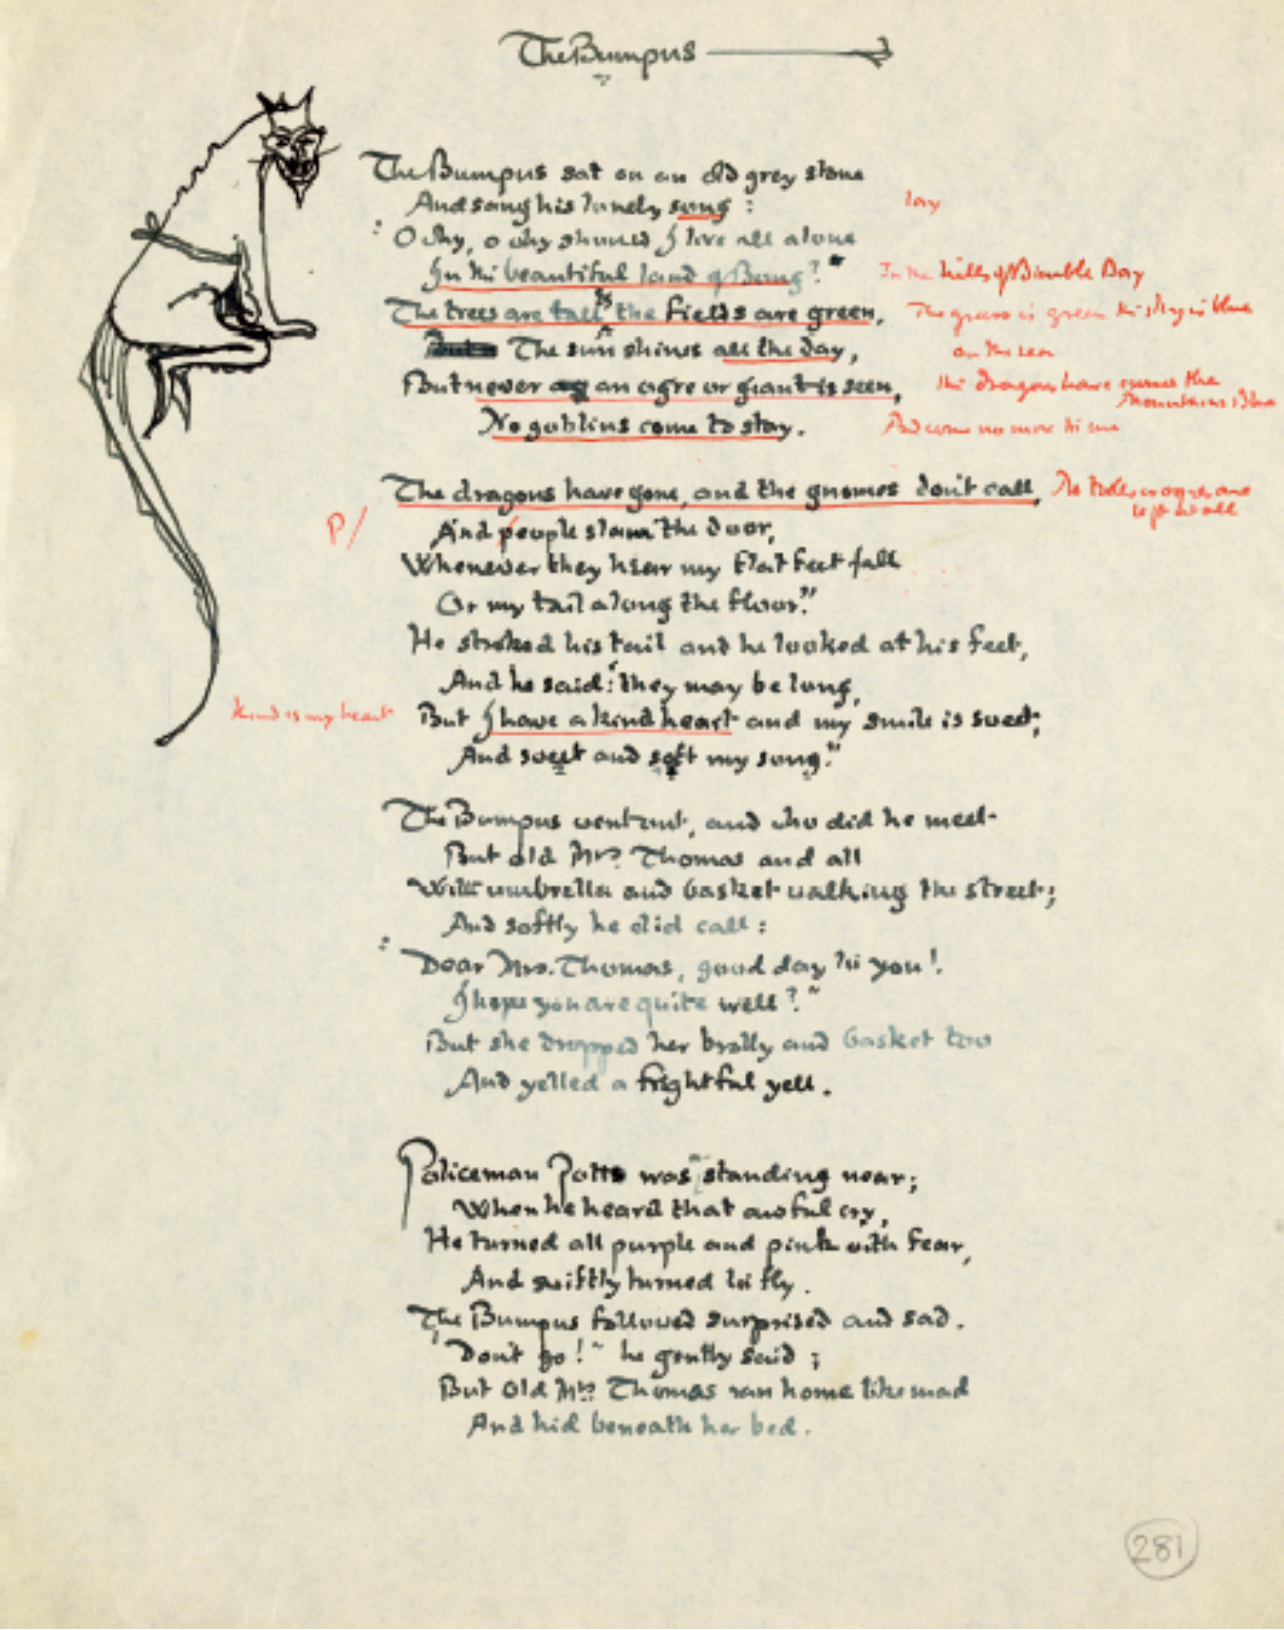 The Bumpus
The Bumpus sat on an old grey stone
And sang his lonely song : lay
"O why, o why should I live all alone
In the beautiful land of Bong?" In the hills of Bimble Bay
The trees are tall & the fields are green, The grass is green the sky is blue
The sun shines all the day, on the sea
But never an ogre or giant is seen, the dragons have crossed the Mountains Blue
No goblins come to stay. And come no more to me
The dragons have gone, and the gnomes don't call, No trolls or ogres are left at all
P/ And people slam the door,
Whenever they hear my flat feet fall
Or my tail along the floor."
He stroked his tail and he looked at his feet,
And he said: "they may be long,
Kind is my heart But I have a kind heart and my smile is sweet,
And sweet and soft my song."
The Bumpus went out, and who did he meet
But old Mrs. Thomas and all
With umbrella and basket walking the street;
And softly he did call :
"Dear Mrs. Thomas, good day to you!
I hope you are quite well?"
But she dropped her brolly and basket too
And yelled a frightful yell.
Policeman Potts was standing near;
When he heard that awful cry,
He turned all purple and pink with fear,
And swiftly turned to fly.
The Bumpus followed surprised and sad.
"Don't go!" he gently said ;
But old Mrs. Thomas ran home like mad
And hid beneath her bed.
281